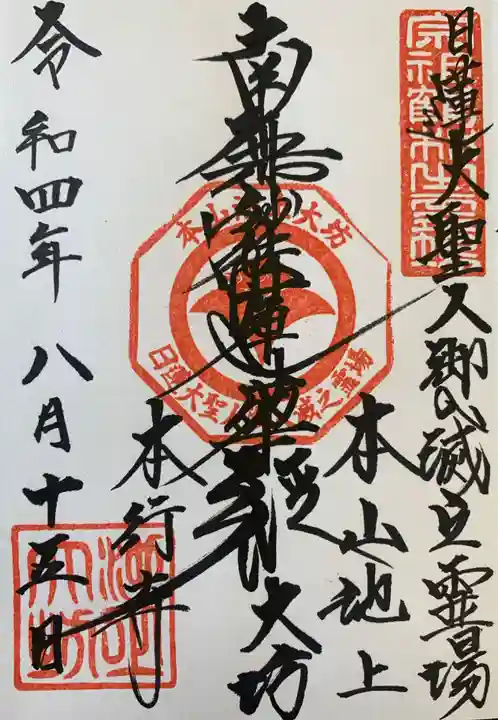 日蓮大聖人御入滅之霊場
本山池上
大坊
南無妙法蓮華経
本行寺
令和四年八月十五日
本山池上大坊
日蓮大聖人御入滅之霊場
池上
大坊